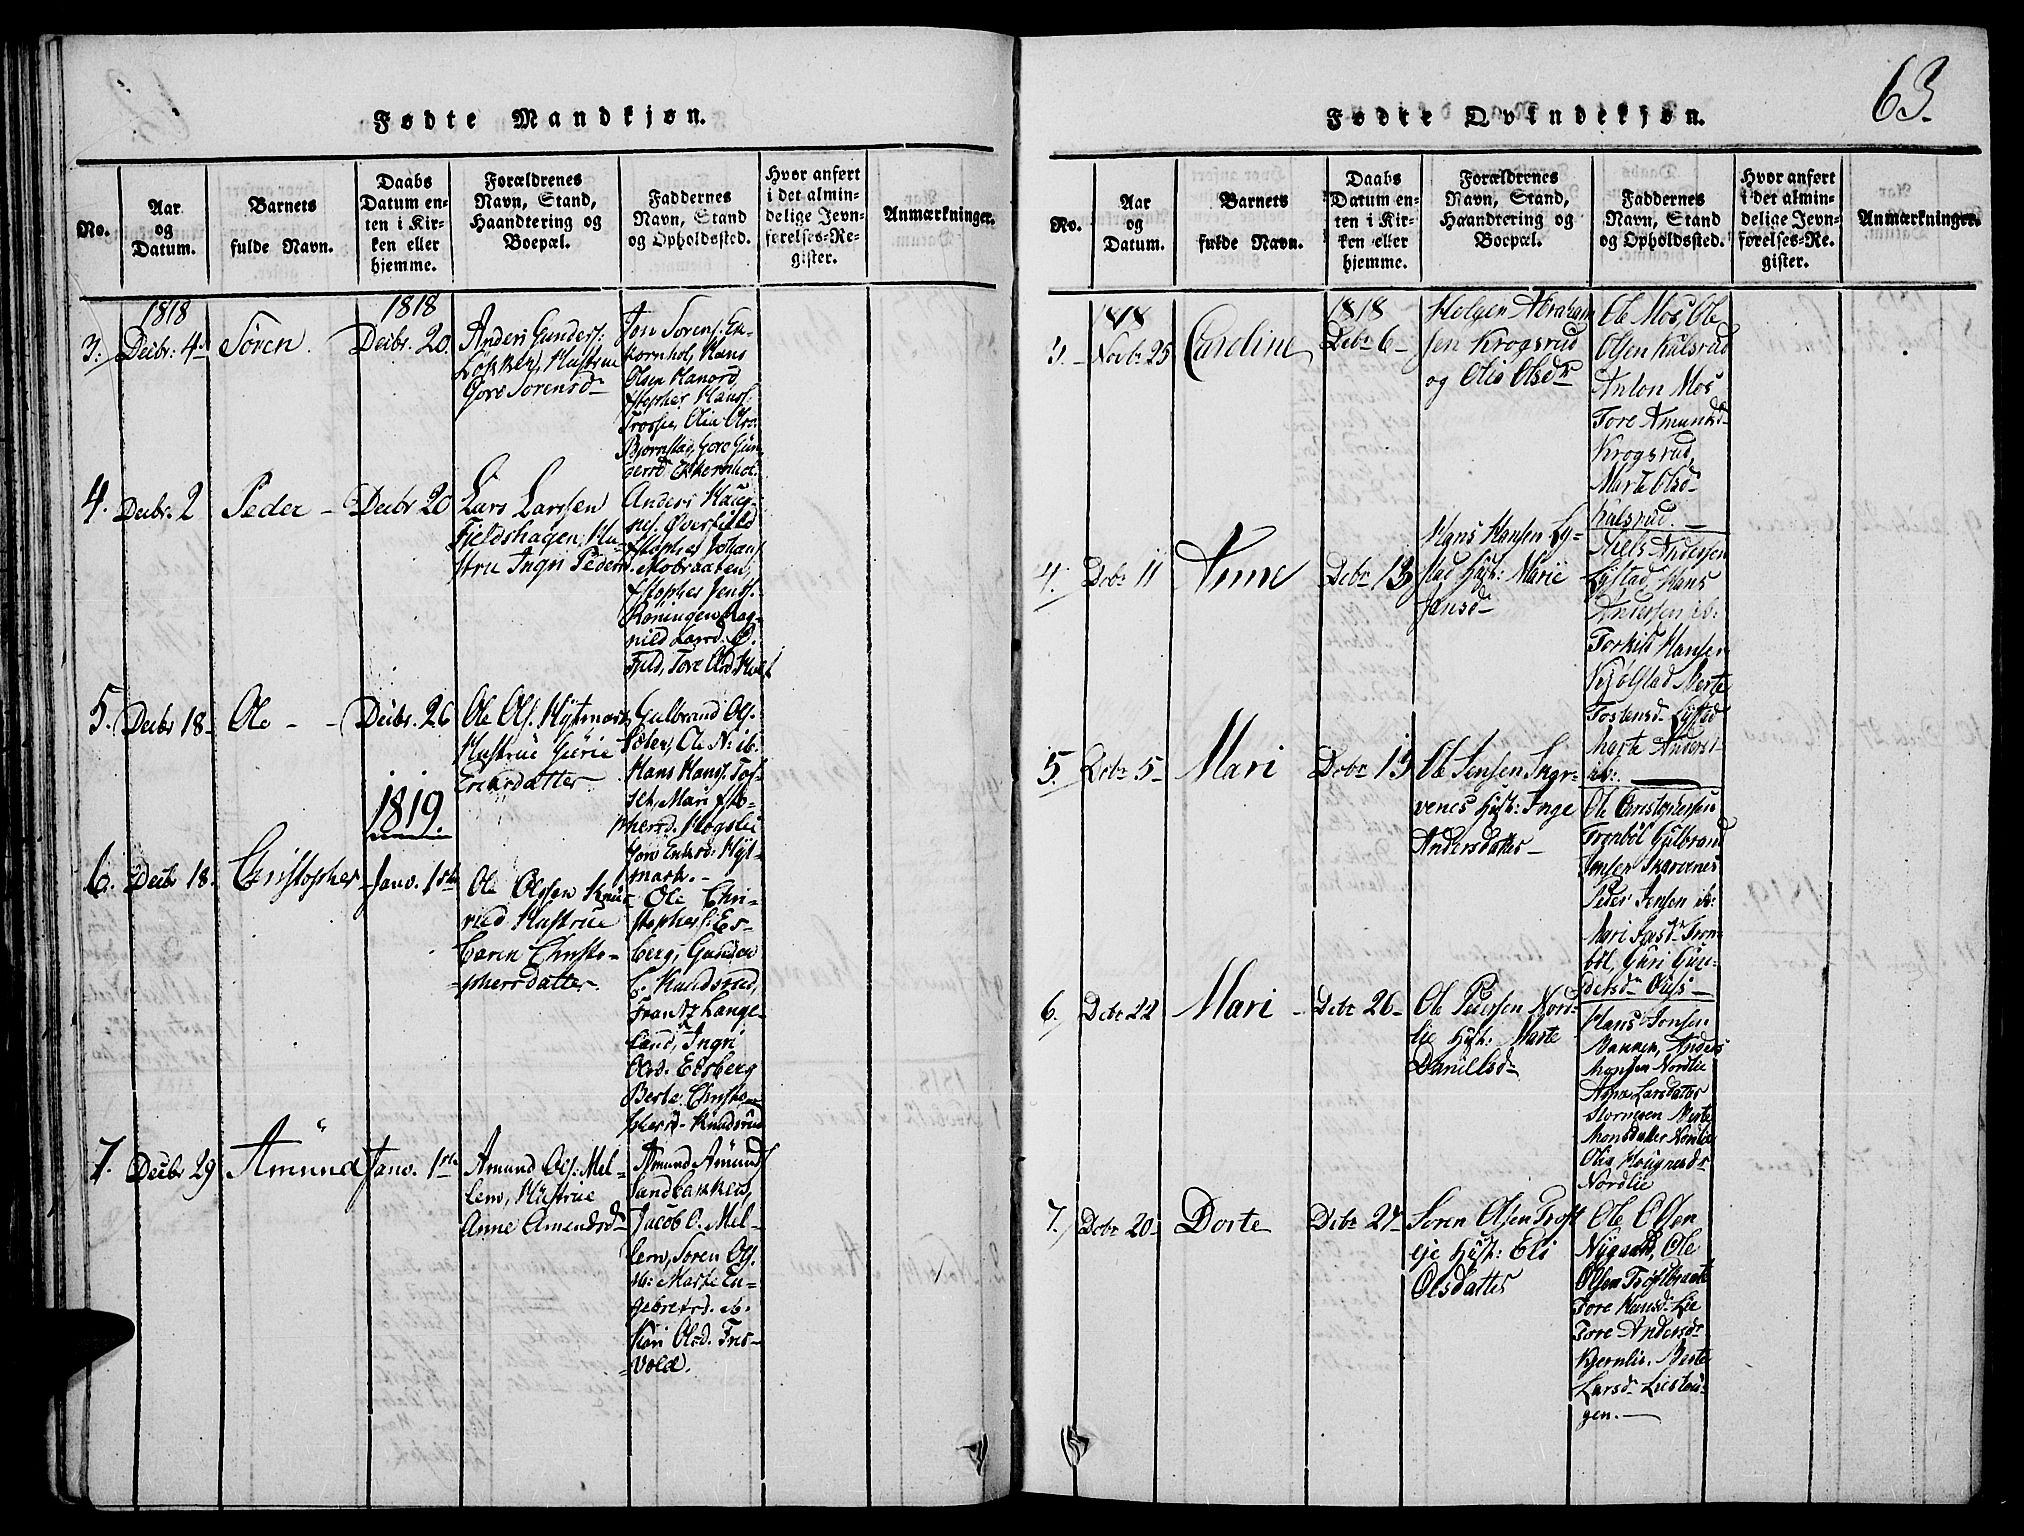 Fødte Mandkjøn.
No.
Aar
og
Datum.
Barnets
fulde Navn.
Daabs
Datum en-
ten i Kir-
ken eller
hjemme.
Forældrenes
Navn, Stand,
Haandtering og
Boepæl.
Faddernes
Navn, Stand
og Opholdssted.
Hvor anført
i det almin-
delige Jevn-
førelses-Re-
gister.
Anmærkninger.
3.
1818
Decbr: 4.
Søren.
1818
Decbr. 20
Anders Gunders:
Løkken, Hustrue
Gore Sorensd
Jon Sorens:
Hans
Olsen
Hans:
Olia
Bjornstad, Gore
4.
Decbr. 2
Peder -
Decbr 20
Lars Larssen
Fieldshagen, Hu-
strue Ingri Pedersd
Anders Haug-
Johans
Mobraaten,
Jens:
Roningen, Rag-
nild Larsd.
Tore
5.
Decbr 18
Ole - -
Decbr. 26
Ole Ols. Hytmark
Hustrue
Ericksdatter.
Gulbrand Ols.
Ole N: ib.
Hans Hans.
Mari
mark.
1819.
6.
Decbr 18.
Christopher
Janv. 1ste
Ole Olssen Knu-
rud Hustrue
Caren Christo-
phersdatter.
Ole Chri-
stophers: Es-
berg, Gunder
C. Knudsrud,
Frantz Lange-
land, Ingri
Olsd. Eesberg
Berte Christo-
phersd. Knudsrud
7.
Decbr 29
Amund
Janv. 1ste
Amund Ols: Mel-
lem, Hustrue
Anne Amundsd
Amund Amunds
Sandbakken,
Jacob O. Mel-
lem, Soren Ols.
ib: Marte En-
gebretsd. ib.
Kari Olsd. Fres-
vold.
63.
Fødte Qvindekjøn.
No.
Aar
og
Datum.
Barnets
fulde Navn.
Daabs
Datum en-
ten i Kir-
ken eller
hjemme.
Forældrenes
Navn, Stand,
Haandtering og
Boepæl.
Faddernes
Navn, Stand
og Opholdssted.
Hvor anført
i det almin-
delige Jevn-
førelses-Re-
gister.
Anmærkninger.
3.
1818
Novbr 25
Caroline
1818
Debr 6
Helgen Abraham
sen Krogsrud
og Olia Olsdr
Ole Mos, Ole
Olsen Kalsrud
Anton Mos
Tore Amundsd
Krogsrud,
Marte Olsd
Kalsrud.
4.
Debr 11
Anne
Debr 13
Hans Hansen Ly-
stad Hust: Marie
Jansd
Niels Andersen
Lystad, Hans
Andersen ib:
Torkild Hansen
Kjølstad Merte
Lystad
Marte Andersd
ib:
5.
Debr 5
Mari
Debr 13
Ole Jensen Skar-
venes Hust: Inge
Andersdatter
Ole Christophersen
Trønbøl Gulbrand
Jensen Skarvenes
Peder Jensen ib:
Mari
bøl, Guri
6.
Debr 22
Mari
Debr 26
Ole Pedersen Nord-
lie Hust: Marte
Danielsd
Hans Jonsen
Bakken, Anders
Nordlie
Anna Larsdatter
Merte
Monsdatter Nordlie
Olia
Nordlie
7.
Debr 20
Dorte
Debr 27
Soren Olsen Troft
eje Hust: Eli
Olsdatter
Ole Olsen
Nygaard, Ole
Olsen
Tore Hansd. Lie
Tore Andersdr
Kjernlie. Berte
Larsd. Liestau-
gen.